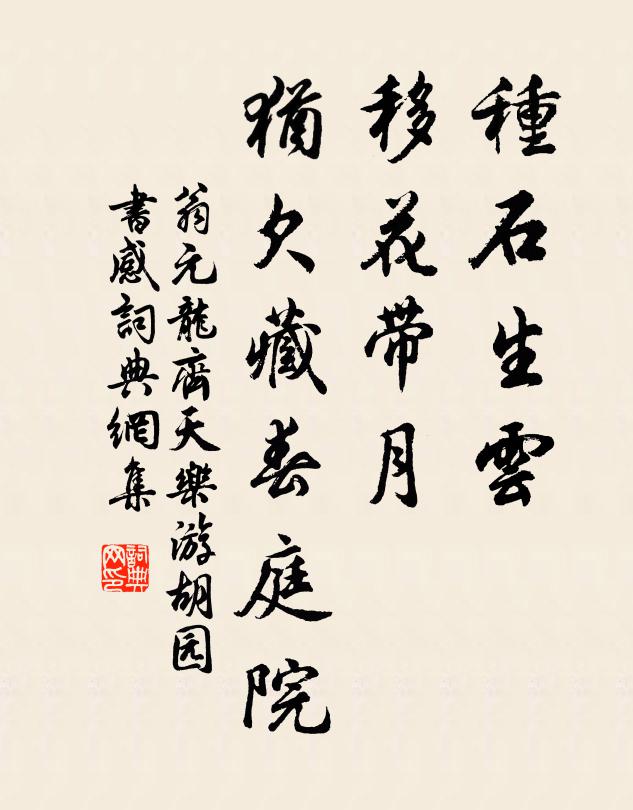 種石生雲
移花帶月
猶欠藏春庭院
翁元龍齊天樂游胡园
書感詞典網集
詞典
网印